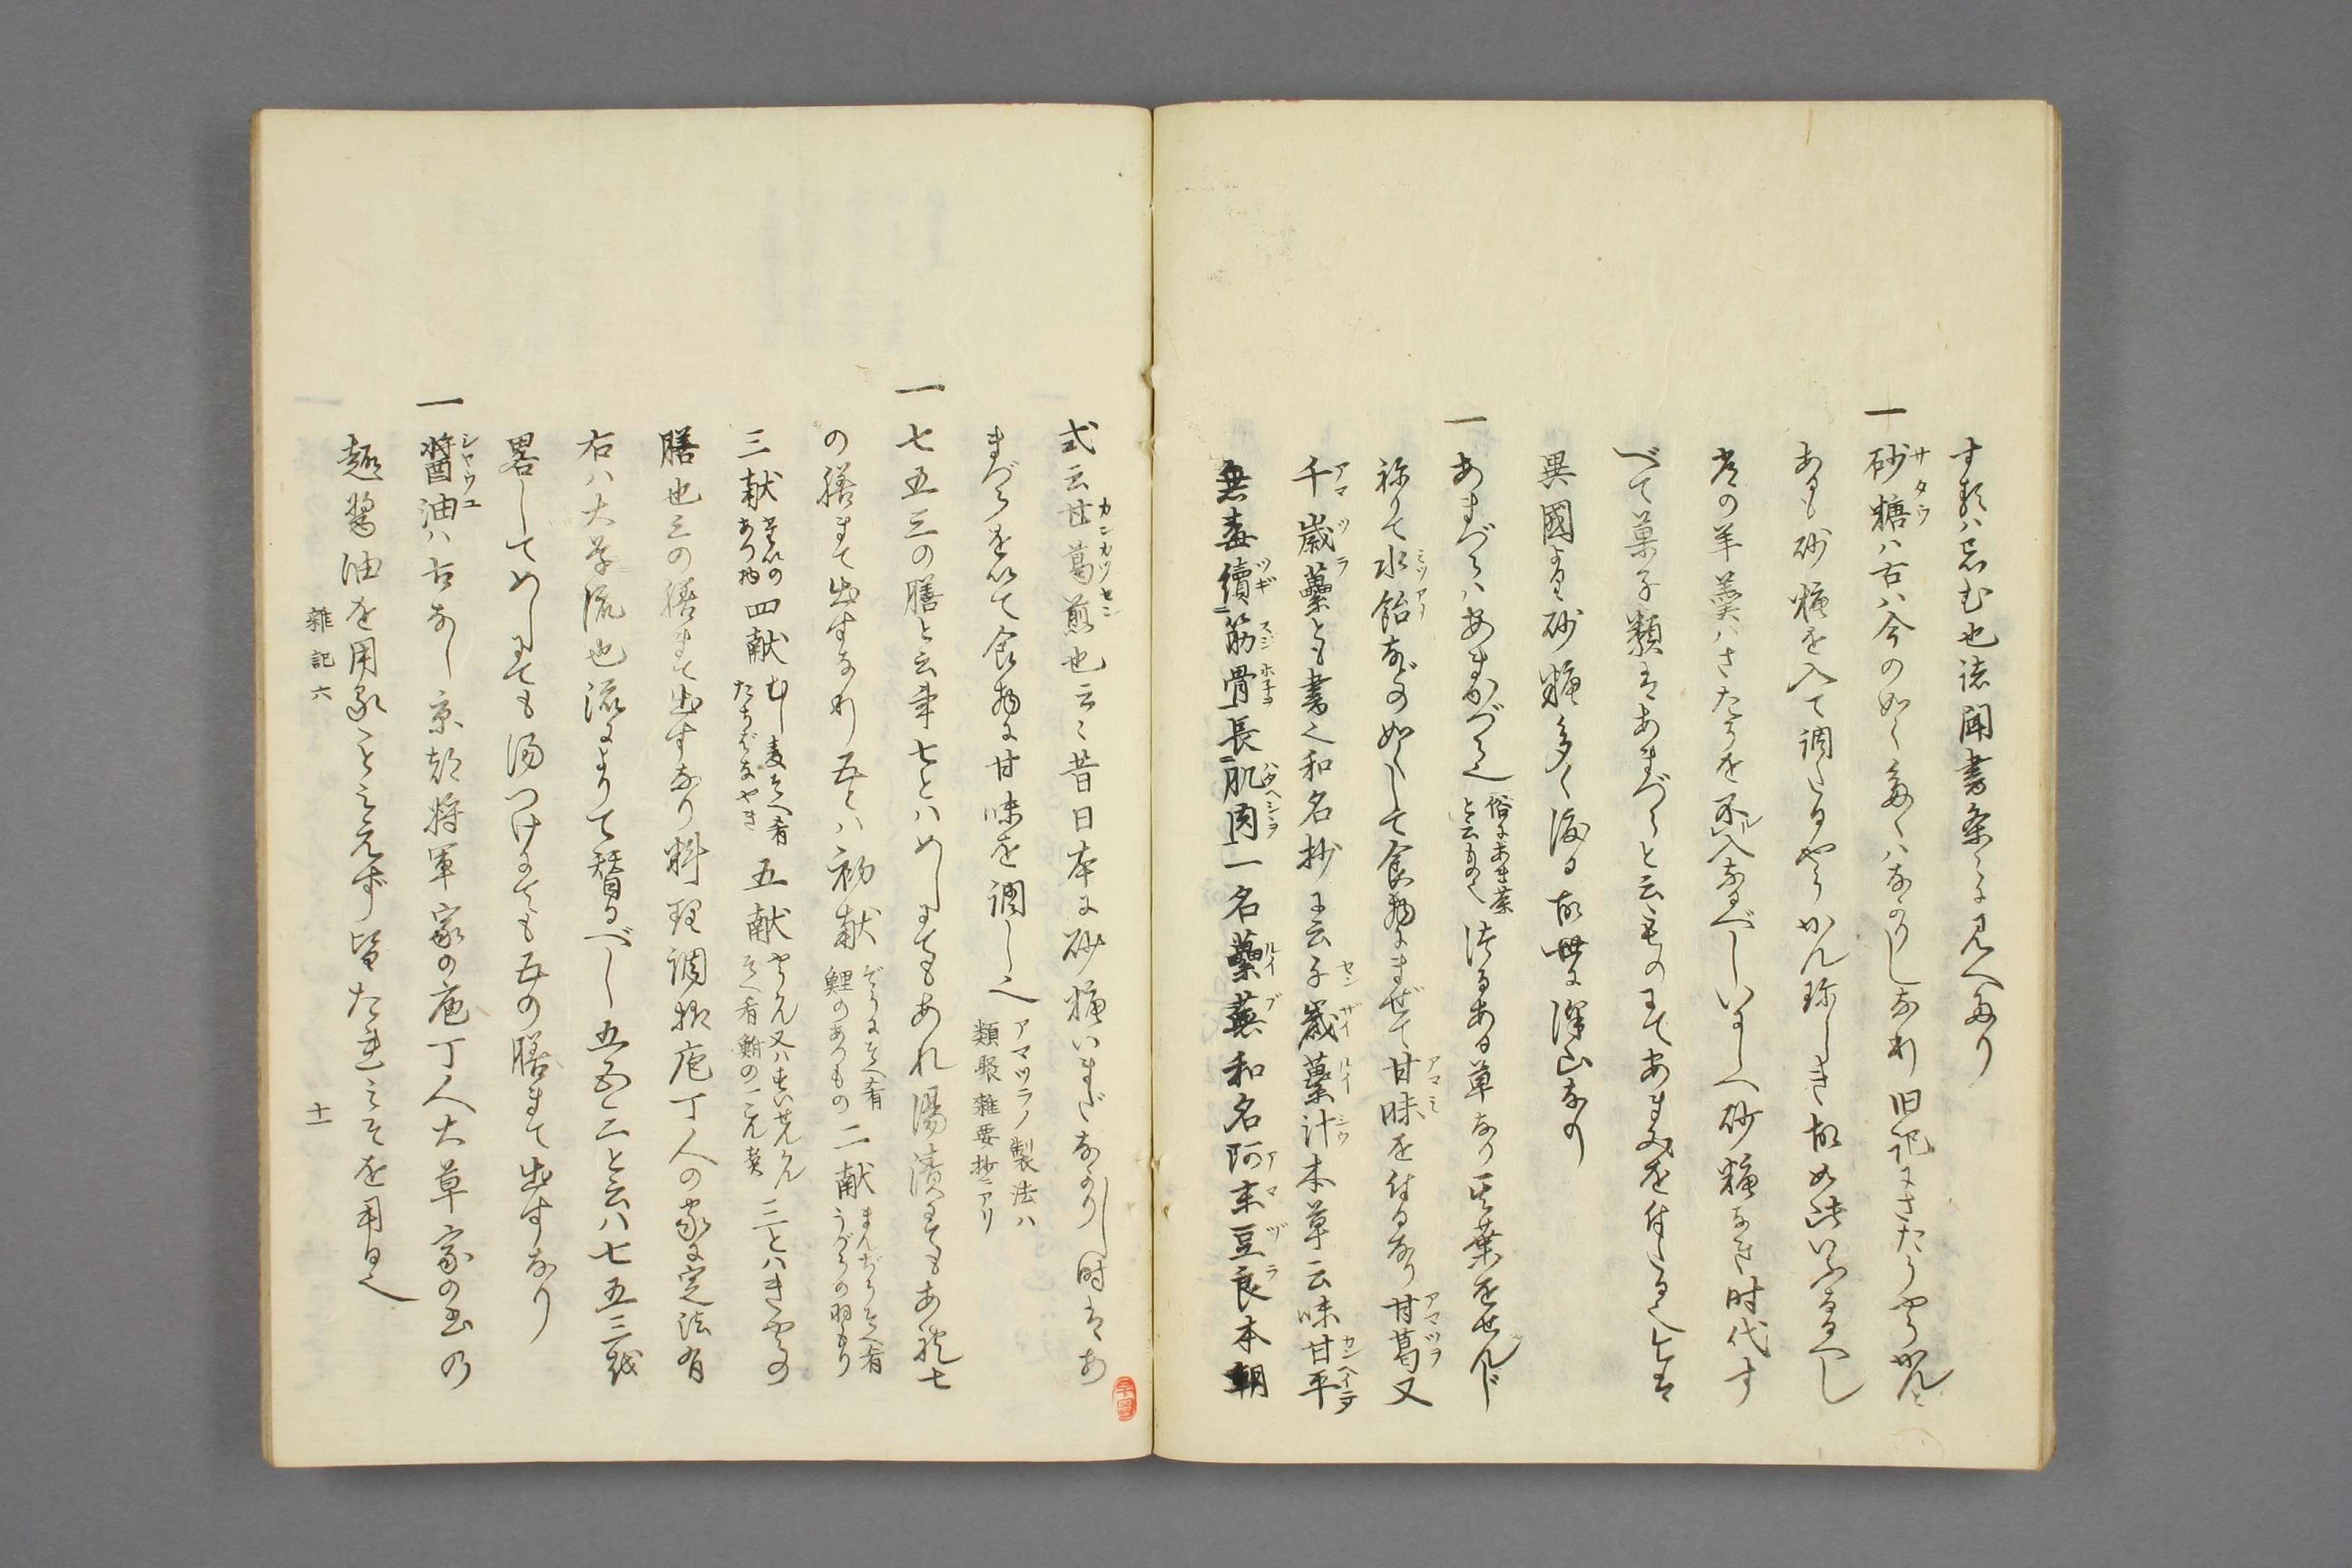 する事ハ忌む也諸聞書条々に見へたり
一 砂糖ハ古ハ今の如く多くハなかりしなり旧記にさたうやうかんと
あるも砂糖を入て調たるやうかん珍しき故如此いふなるへし
常の羊羹ハさたうを不入なるべしいにしへ砂糖なき時代す
べて菓子類はあまづらと云ものにてあまみを付たる也今は
異國より砂糖多く渡る故世に沢山なり
一 あまづらハあまかづら也 俗にあま茶と云もの也 つるある草なり其葉をせんじ
ねりて水飴などの如くして食物にまぜて甘味を付るなり甘葛又
千歳虆とも書之和名抄に云千歳虆汁本草云味甘平
無毒續筋骨長肌肉一名虆蕪和名阿末豆良本朝
式云甘葛煎也云々昔日本に砂糖いまだなかりし時はあ
まづらを以て食物に甘味を調し也 アマツラノ製法ハ類聚雑要抄ニアリ
一 七五三の膳と云事七とハめしにてもあれ湯漬にてもあれ七
の膳まて出すなり五とハ初献 ぞうにそへ肴鯉のあつもの 二献 まんぢうそへ肴うづらの羽もり
三献 あつ物 四献 むし麦そへ肴たちばなやき 五献 やうかん又ハすいせんかんそへ肴鮒の一こん煮 三とハきやうの
膳也三の膳まて出すなり料理調様庖丁人の家に定法有
右ハ大草流也流によりて替るべし五五三と云ハ七五三を
畧してめしにても湯つけにても五の膳まて出すなり
一 醤油ハ古なし京都将軍家の庖丁人大草家の書の
趣醤油を用ることみえず皆たれみそを用る也
雜記六
十一